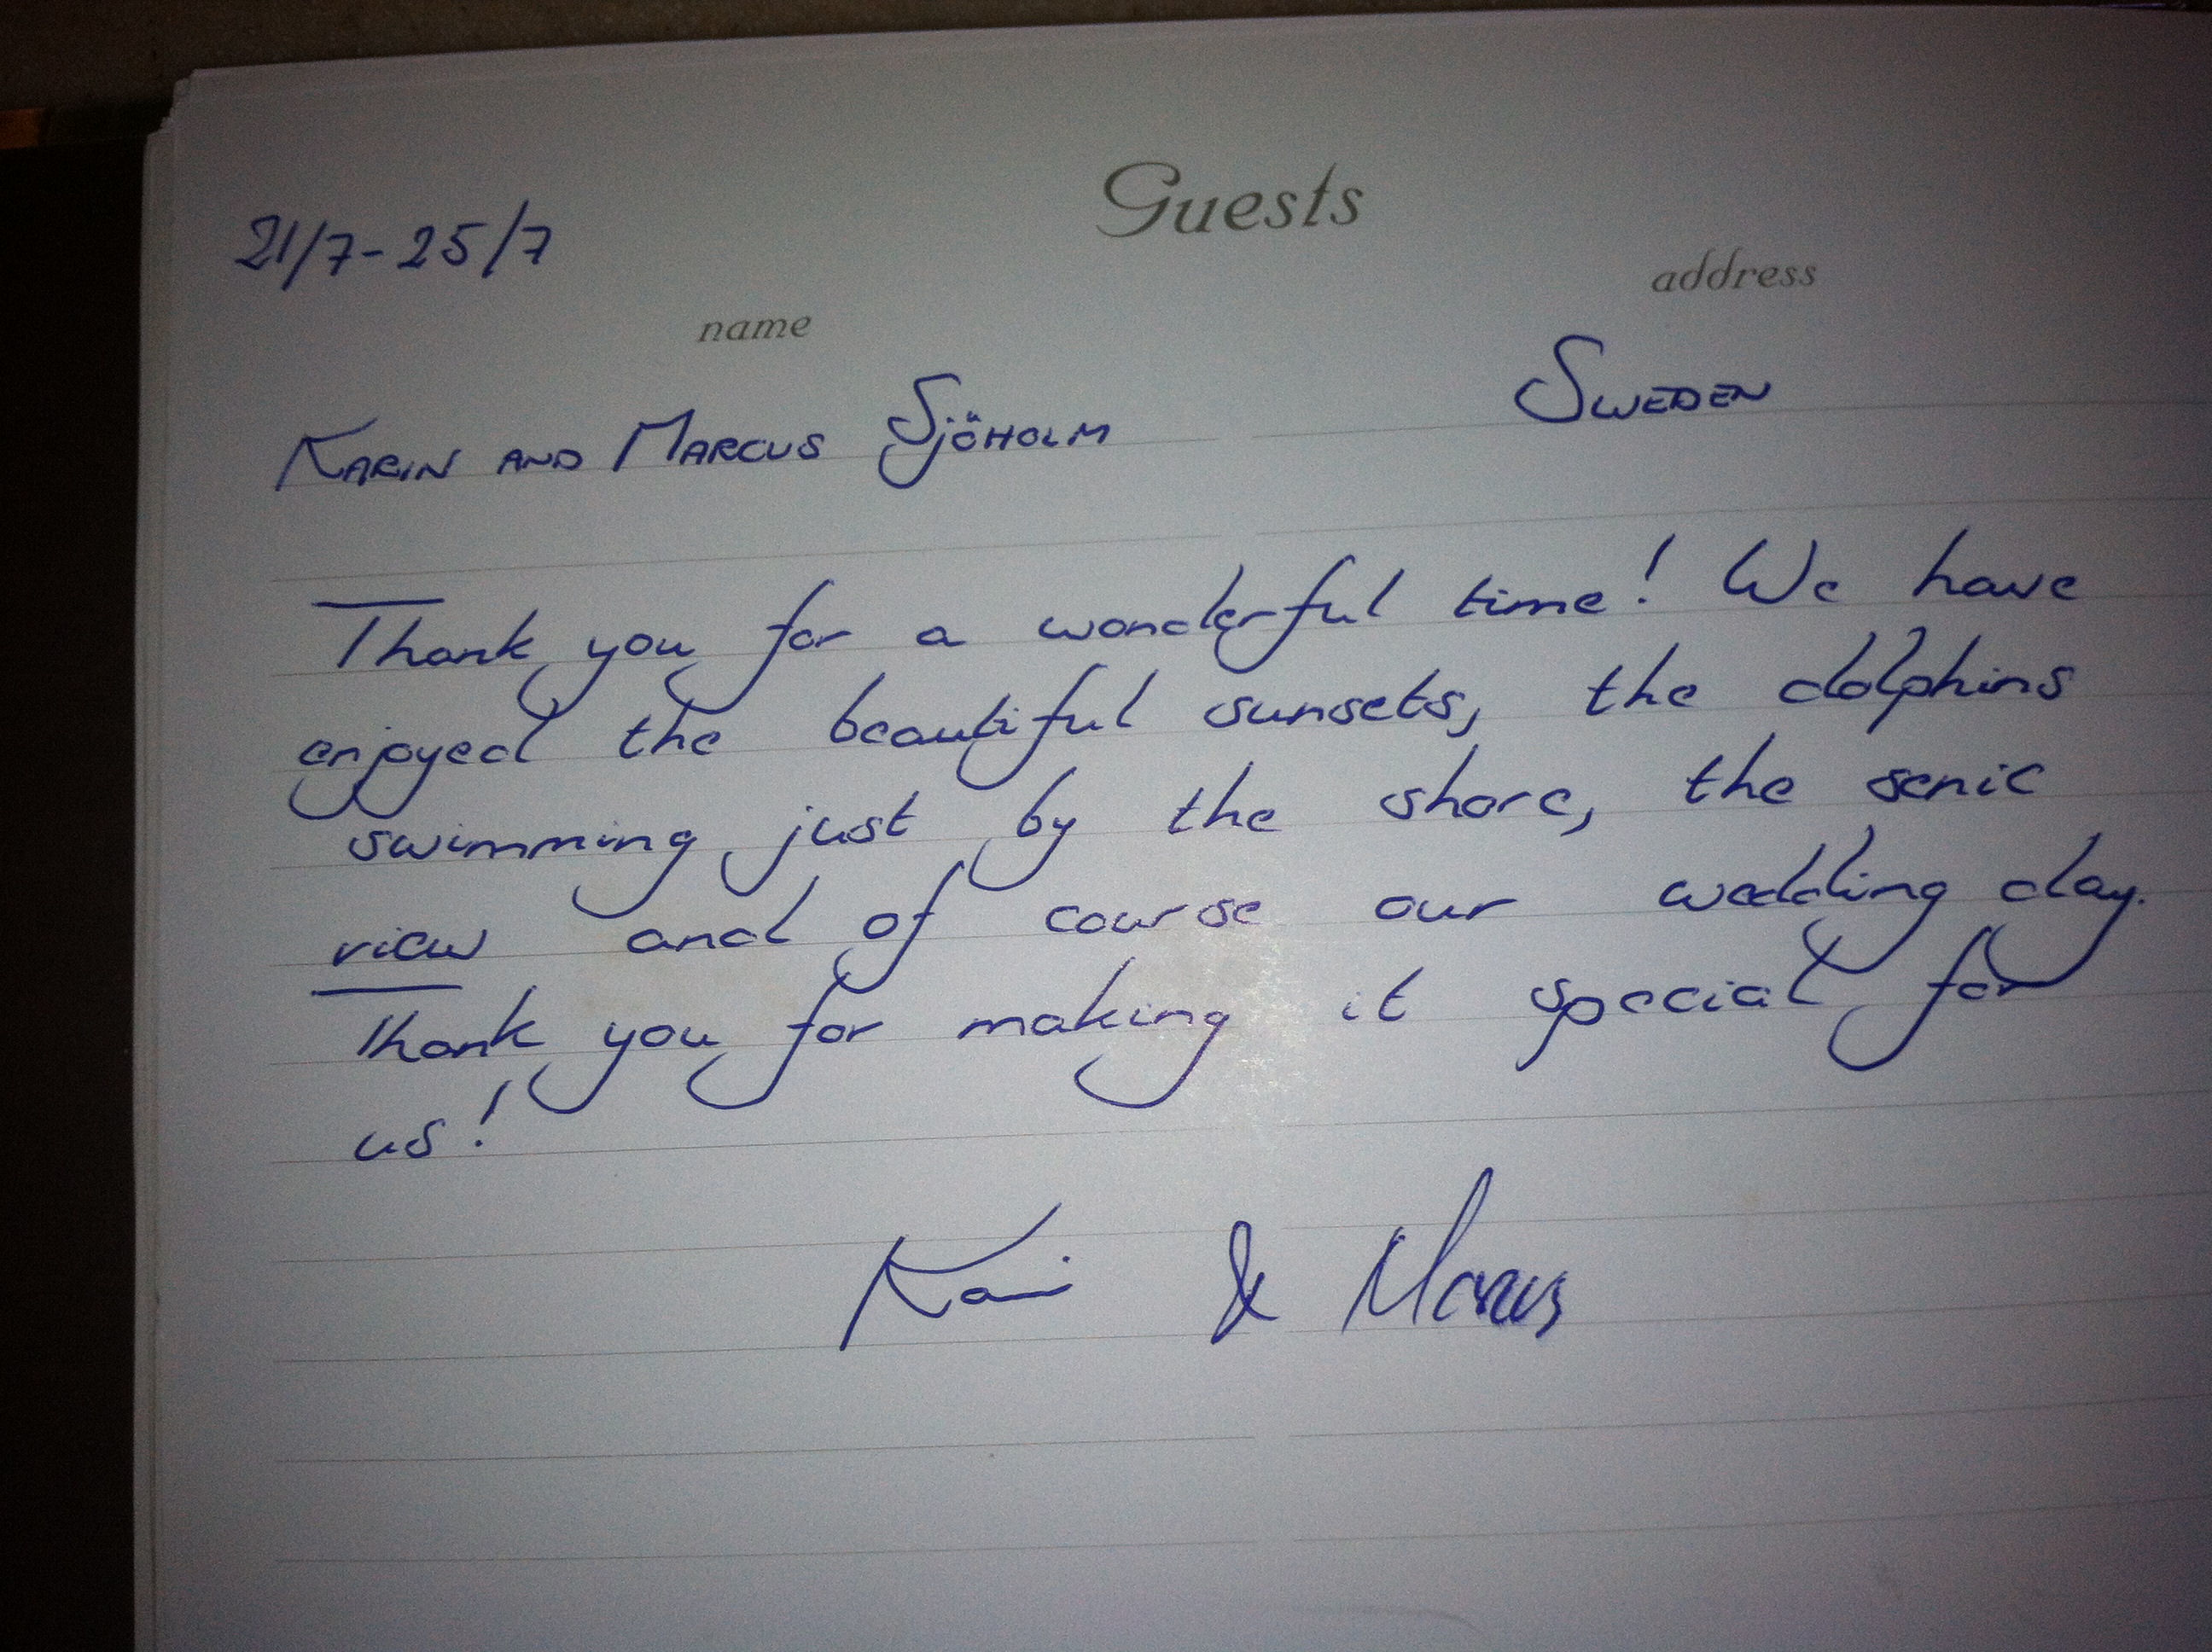 Guests
21/7-25/7
name address
KARIN AND MARCUS SJÖHOLM SWEDEN
Thank you for a wonderful time! We have
enjoyed the beautiful sunsets, the dolphins
swimming just by the shore, the senic
view and of course our wedding day.
Thank you for making it special for
us!
Karin & Marcus